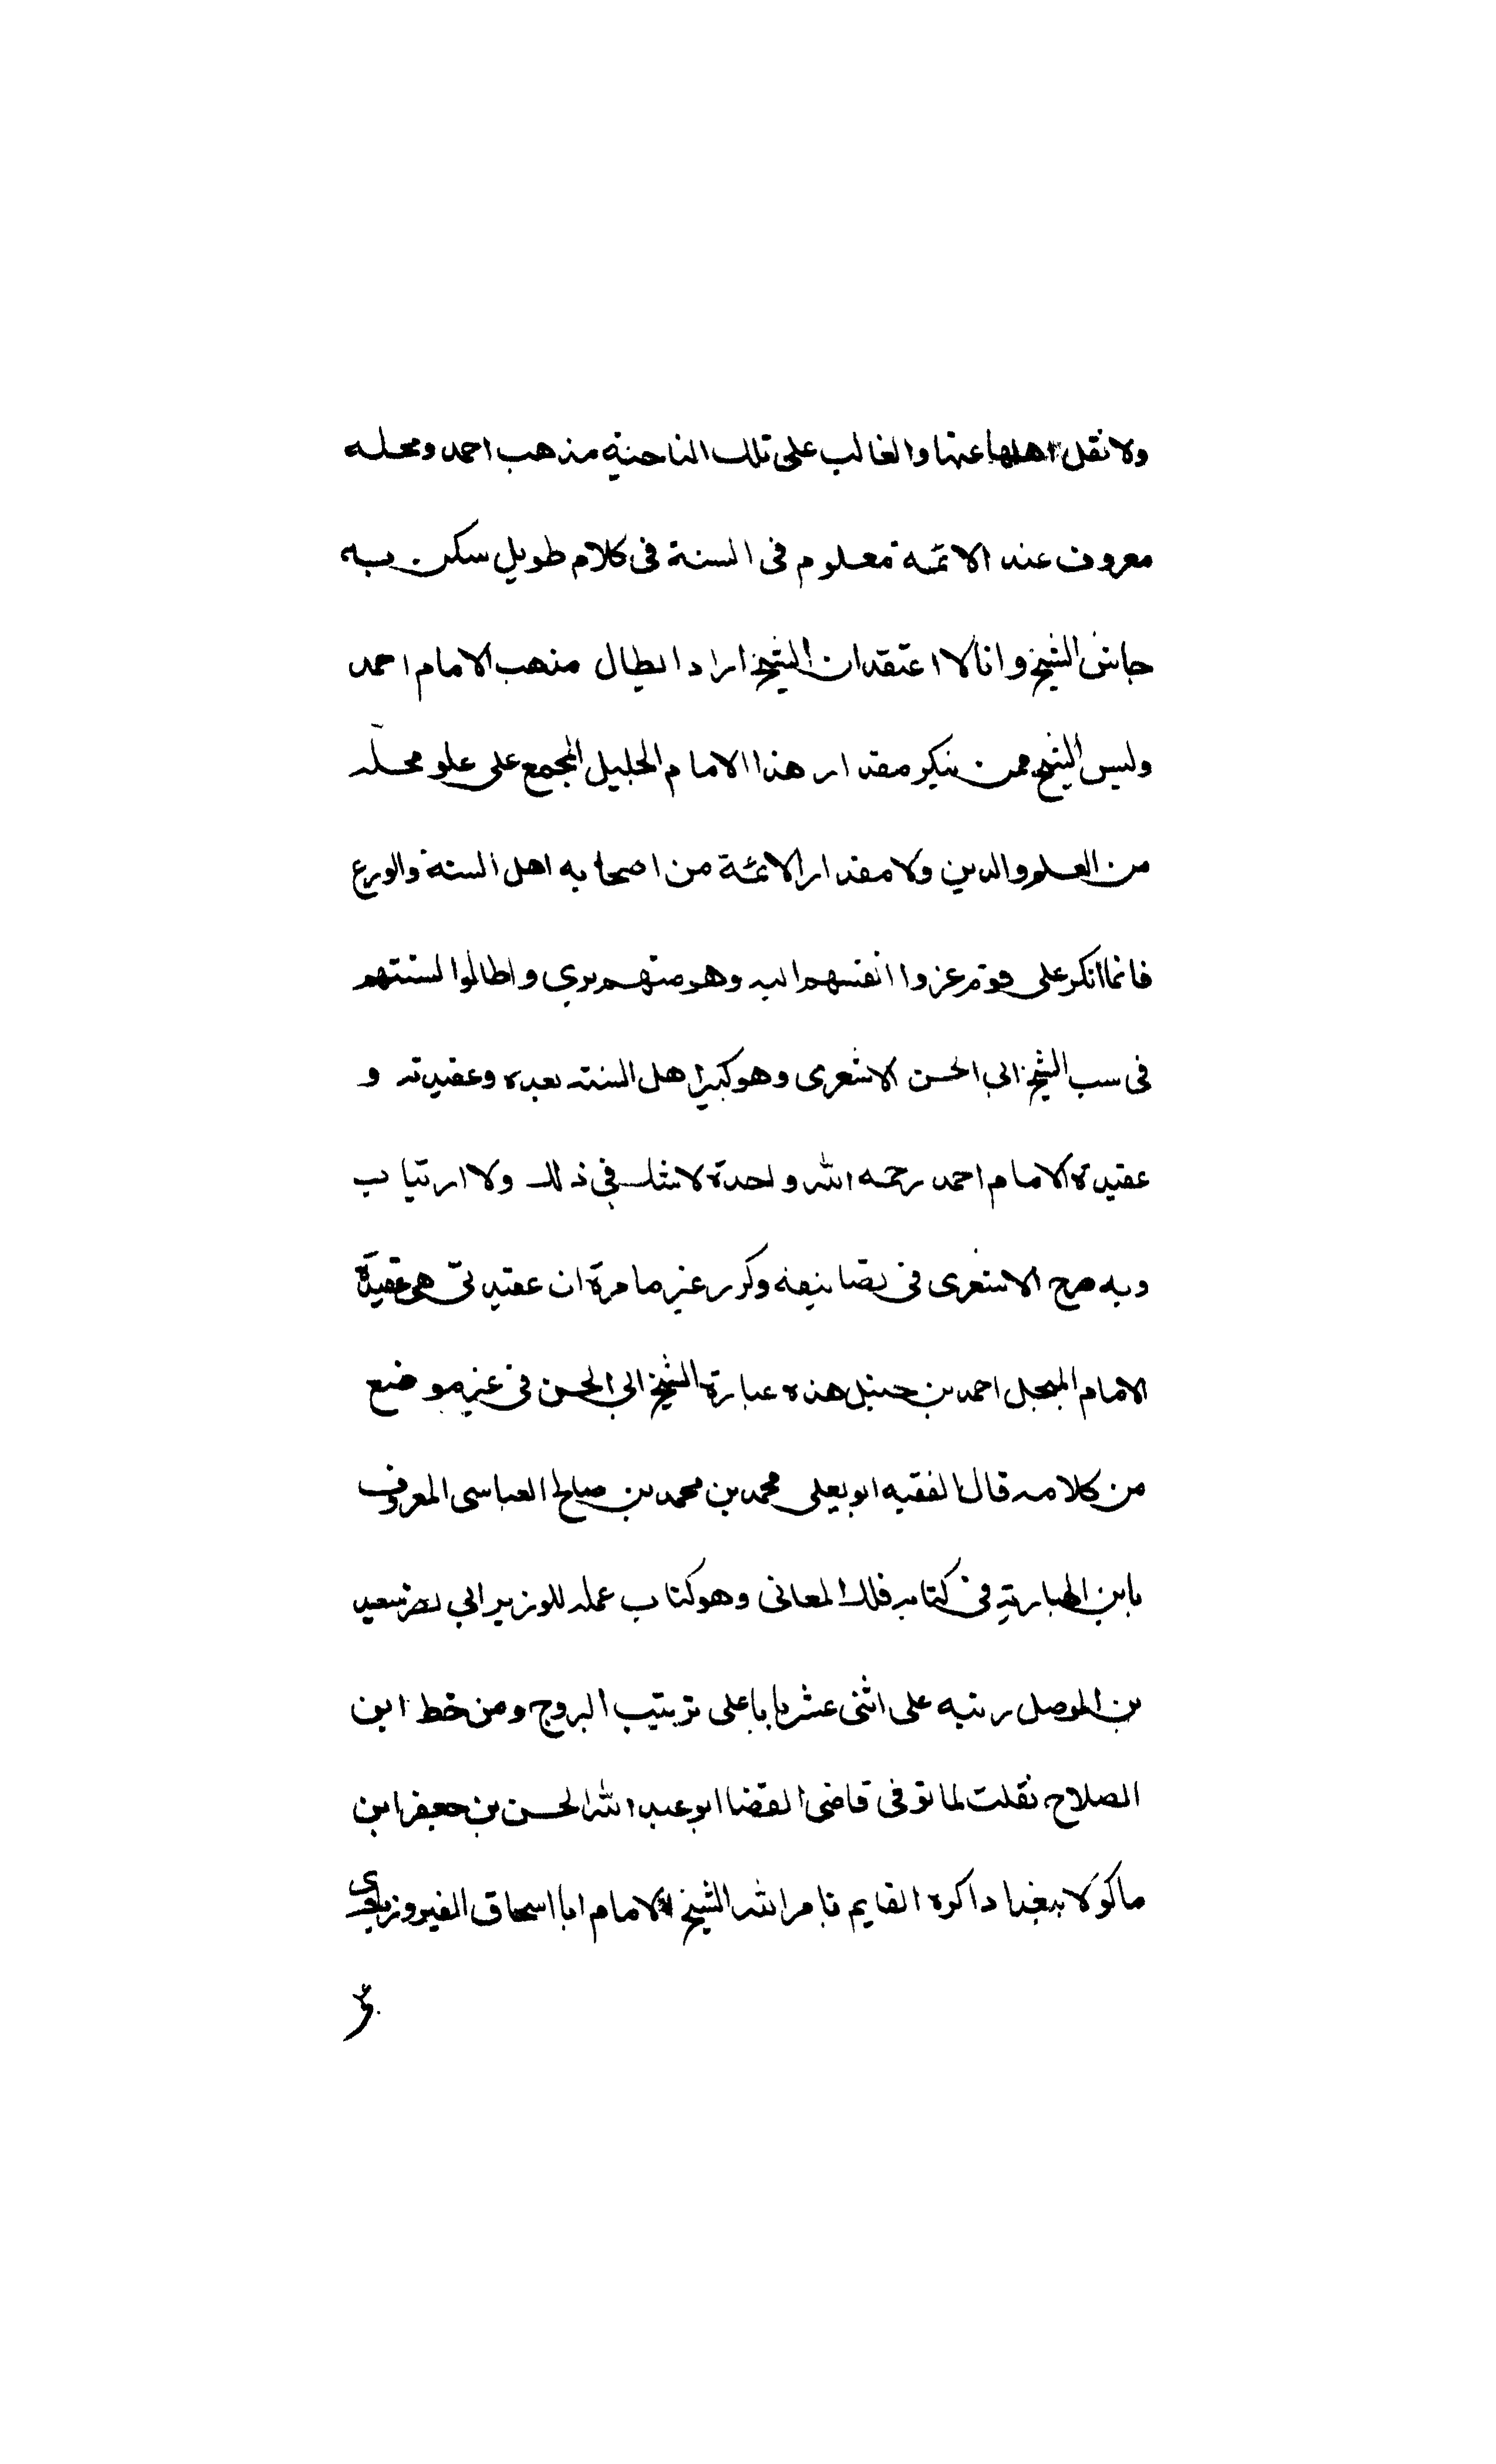 ولا نقل اهلها عنها والغالب على تلك الناحية مذهب احمد ومحله
معروف عند الائمة معلوم فى السنة فى كلام طويل سكن به
جاش الشيخ وانا لا اعتقد ان الشيخ اراد ابطال مذهب الامام احمد
وليس الشيخ ممن ينكر مقدار هذا الامام الجليل المجمع على علو محله
من العلم والدين ولا مقدار الائمة من اصحابه اهل السنة والورع
فانما انكر على قوم عزوا انفسهم اليه وهو منهم بري واطالوا لسنتهم
فى سب الشيخ ابى الحسن الاشعرى وهو كبير اهل السنة بعده وعقيدته و
عقيدة الامام احمد رحمه الله واحدة لا شك فى ذلك ولا ارتياب
وبه صرح الاشعرى فى تصانيفه وكرر غير ما مرة ان عقيدتى هى عقيدة
الامام المبجل احمد بن حنبل هذه عبارة الشيخ ابى الحسن فى غير موضع
من كلامه قال الفقيه ابو يعلى محمد بن محمد بن صالح العباسى المعروف
بابن الهبارية فى كتابه فلك المعانى وهو كتاب عمله للوزير ابي نصر سعيد
بن الموصل رتبه على اثنى عشر بابا على ترتيب البروج ومن خط ابن
الصلاح نقلت لما توفى قاضى القضا ابو عبد الله الحسن بن جعفر ابن
ماكولا ببغداد اكره القايم بامر الله الشيخ الامام ابا اسحاق الفيروزبادى